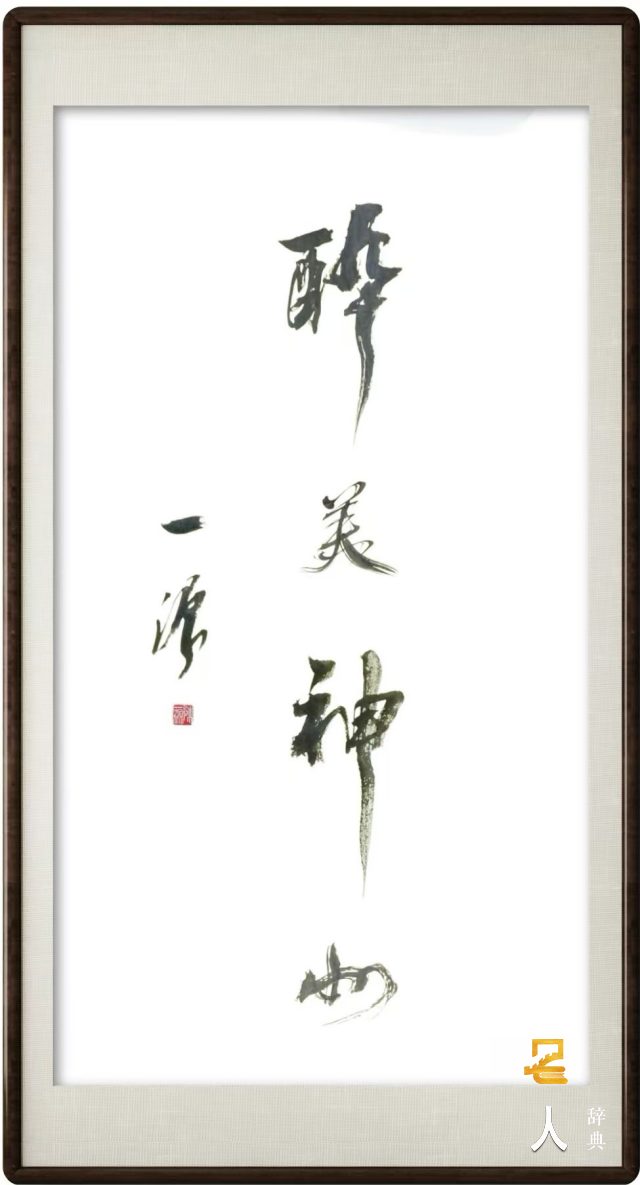 醉美神州
一源
人
辞典